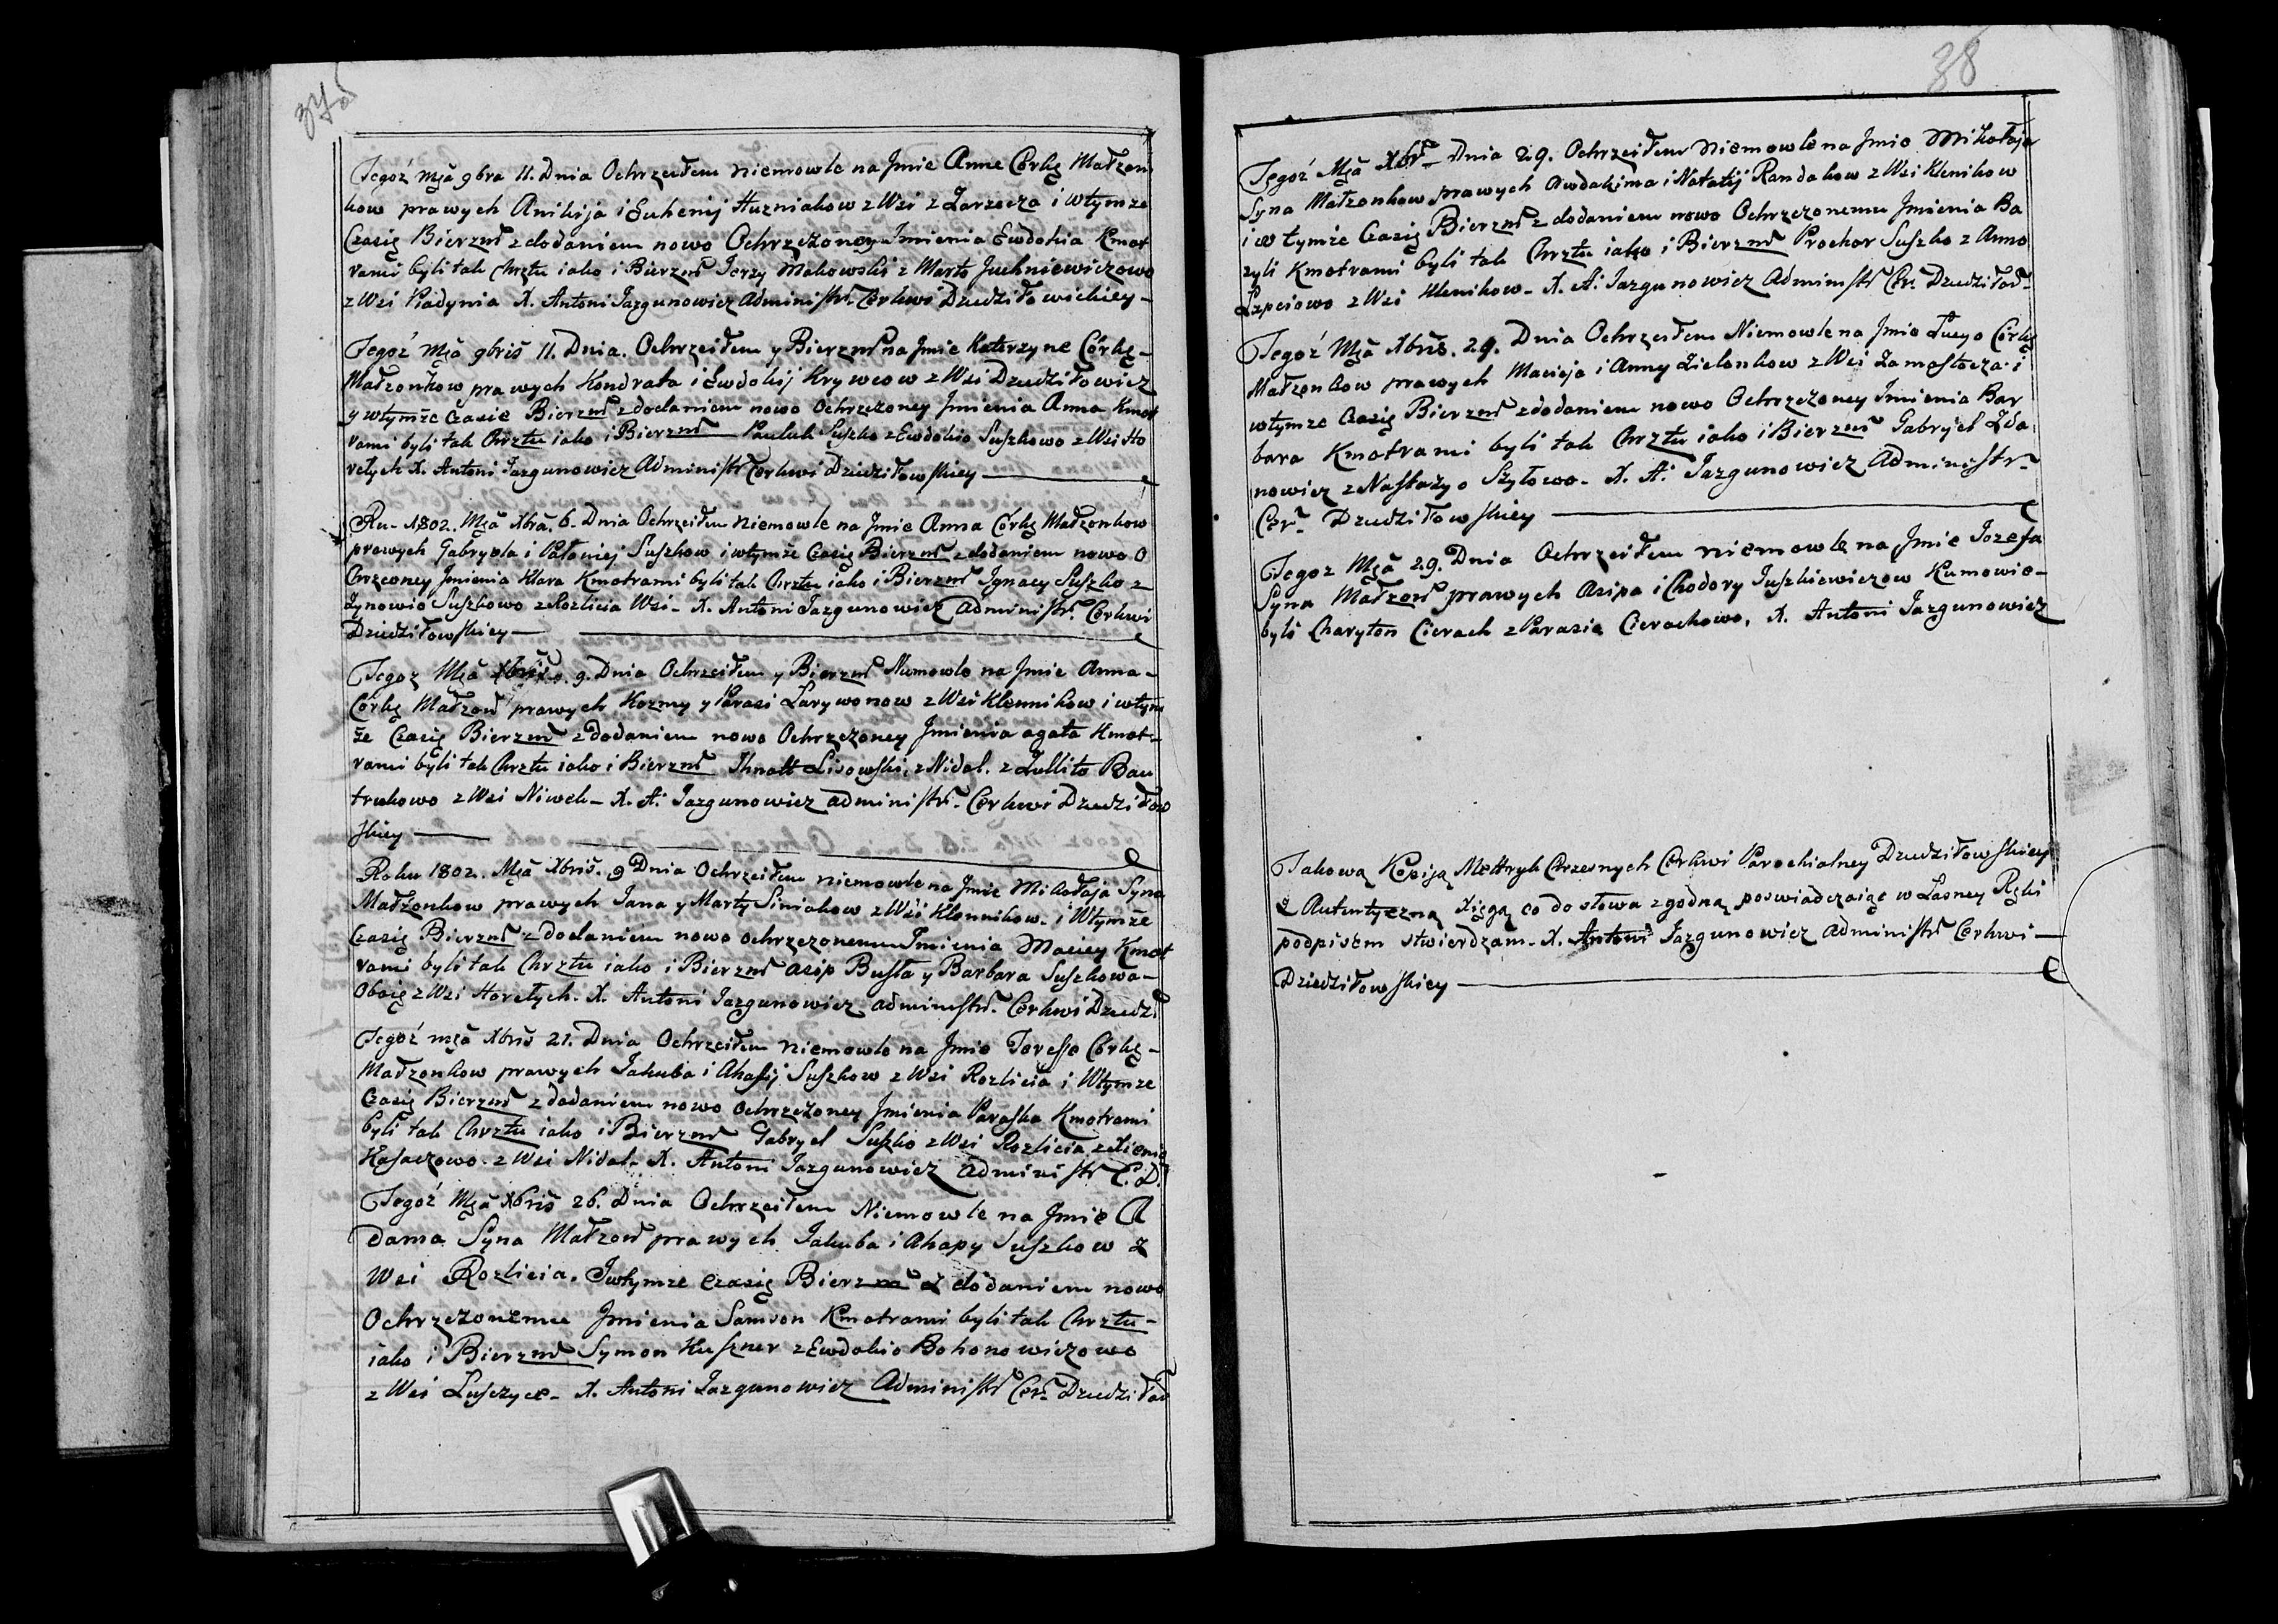 37 об
Tegoż Mcă 9bra 11. Dnia Ochrzciłem Niemowle na Jmie Anne Córkę Małżon
kow prawych Anikija i Euhenij Huzniakow z Wsi z Zarzecza i wtymże
Czasię Bierzm z dodaniem nowo Ochrzczoney Jmienia Ewdokia Kmot
rami byli tak Chrztu iako i Bierzm Jerzy Makowski z Marto Juchniewiczowo
z Wsi Kładynia X. Antoni Jazgunowicz Administr. Cerkwi Dziedziłowickiey
Tegoż Mcă 9bris 11. Dnia. Ochrzciłem y Bierzm na Jmie Katerzyne Córkę
Małżonkow prawych Kondrata i Ewdokij Krywcow z Wsi Dziedziłowicz
y wtymże Czasie Bierzm z dodaniem nowo Ochrzczoney Jmienia Anna Kmot
rami byli tak Chrztu iako i Bierzm Pauluk Suszko z Ewdokio Suszkowo z Wsi Ho
rełych X. Antoni Jazgunowicz Administr Cerkwi Dziedziłowskiey
Ru 1802. Mcă Xbra. 6. Dnia Ochrzciłem Niemowle na Jmie Anna Córkę Małżonkow
prawych Gabryela i Pałaniej Suszkow i wtymże Czasię Bierzm z dodaniem nowo O
Chrzconey Jmienia Klara Kmotrami byli tak Chrztu iako i Bierzm Ignacy Suszko z
Zynowio Suszkowo z Rozlicia Wsi X. Antoni Jazgunowicz Administr. Cerkwi
Dziedziłowskiey
Tegoz Mcă Xbris. 9. Dnia Ochrzciłem y Bierzm Niemowlo na Jmie Anna
Córkę Małżon prawych Kozmy y Parasi Larywonow z Wsi Klennikow i wtym
że Czasię Bierzm z dodaniem nowo Ochrzczoney Jmienia agata Kmot
rami byli tak Chrztu iako i Bierzm Jhnatt Lisowski, z Nidal. z Zullito Bau
trukowo z Wsi Niwek X. A: Jazgunowicz administr. Cerkwi Dziedziłow
skiey
Roku 1802. Mcă Xbris. 9 Dnia Ochrzciłem niemowle na Jmie Mikołaja Syna
Małżonkow prawych Jana y Marty Siniakow z Wsi Klonnikow. i Wtymże
Czasię Bierzm z dodaniem nowo ochrzczonemu Jmienia Maciey Kmot
rami byli tak Chrztu iako i Bierzm asip Busła y Barbara Suszkowa
Oboię z Wsi Horełych. X. Antoni Jazgunowicz administr. Cerkwi Dziedz.
Tegoż mcă Xbris 21. Dnia Ochrzciłem niemowlo na Jmio Teresso Córkę
Małżonkow prawych Jakuba i Ahafij Suszkow z Wsi Rozlicia i Wtymże
Czasię Bierzm z dodaniem nowo ochrzczoney Jmienia Paraska Kmotrami
byli tak Chrztu iako i Bierzm Gabryel Suszko z Wsi Rozlicia z Xienią
Kasaczowo. z Wsi Nidal. X. Antoni Jazgunowicz Administr C. D.
Tegoż Mcă Xbris 26. Dnia Ochrzciłem Niemowle na Jmie A
dama Syna Małżon prawych Jakuba i Ahapy Suszkow z
Wsi Rozlicia. Jwtymże czasię Bierzm z dodaniem nowo
Ochrzczonemu Jmienia Samson Kmotrami byli tak Chrztu
iako i Bierzm Symon Kuszner z Ewdokio Bohonowiczowo
z Wsi Luszyce. X. Antoni Jazgunowicz Administr Cer. Dziedziłow
38
Tegoż Mcă Xbr Dnia 29. Ochrzciłem Niemowle na Jmio Mikołaja
Syna Małżonkow prawych Awdakima i Natalij Randakow z Wsi Klenikow
i w tymże Czasię Bierzm z dodaniem nowo Ochrzczonemu Jmienia Ba
zyli Kmotrami byli tak Chrztu iako i Bierzm Prochor Suszko z Anno
Łapciowo z Wsi Klenikow X. A: Jazgunowicz Administr Cer. Dziedziłow
Tegoż Mcă Xbris. 29. Dnia Ochrzciłem Niemowle na Jmio Łucyo Córkę
Małżonkow prawych Macieja i Anny Zielonkow z Wsi Zamostocza i
wtymze Czasię Bierzm z dodaniem nowo Ochrzczoney Jmienia Bar
bara Kmotrami byli tak Chrztu iako i Bierzm Gabryel Zda
nowicz z Nastazyo Szyłowo X. A: Jazgunowicz Administr
Cer. Dziedziłowskiey
Tegoz Mcă 29. Dnia Ochrzciłem niemowle na Jmie Jozefa
Syna Małżon prawych Asipa i Chodory Juszkiewiczow Kumowio
byli Charyton Cierach z Parasio Cierachowo, X. Antoni Jazgunowicz
Takową Kopiją Mettryk Chrzesnych Cerkwi Parochialney Dziedziłowskiey
Z Autentyczną Xięgą co do słowa zgodną poswiadczaiąc w Łasney Ręki
podpisem stwierdzam X. Antoni Jazgunowicz Administr Cerkwi
Dziedziłowskiey